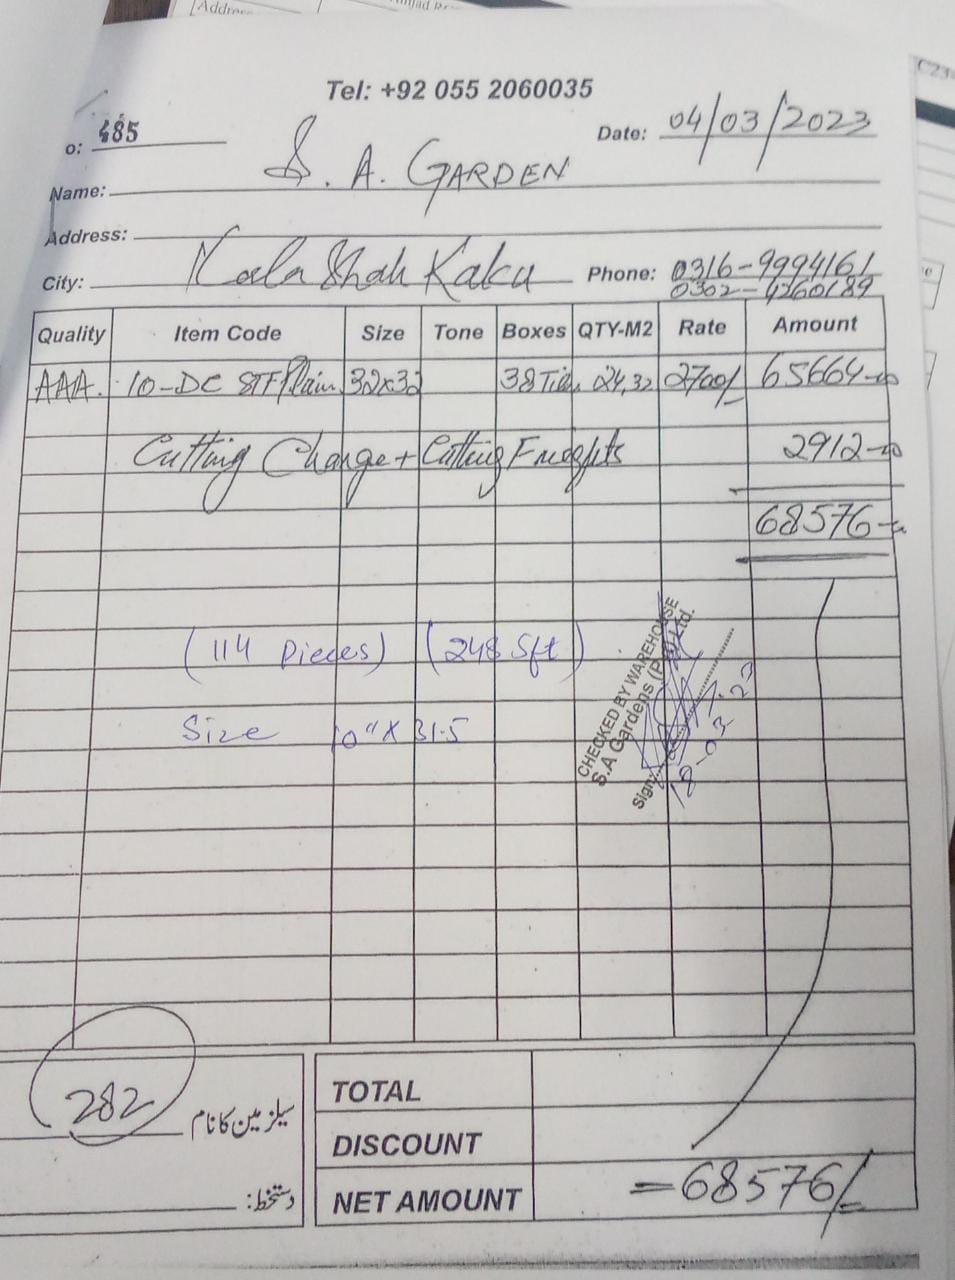 Address
Tel: +92 055 2060035
o: 485
Date: 04/03/2023
Name: S. A. GARDEN
Address:
City: Kala Shah Kaku Phone: 0316-9994161
0302-4260189
Quality Item Code Size Tone Boxes QTY-M2 Rate Amount
AAA. 10-DC STF Plain 32x32 38 Tiles 24,32 2700/- 65664-00
Cutting Charge + Cutting Freights 2912-00
68576-00
(114 Pieces) (248 Sft)
Size 10" X 31.5
CHECKED BY WAREHOUSE
S.A Gardens (Pvt) Ltd.
Sign:
18-03-23
282 سیلز مین کا نام
دستخط:
TOTAL
DISCOUNT
NET AMOUNT =68576/-